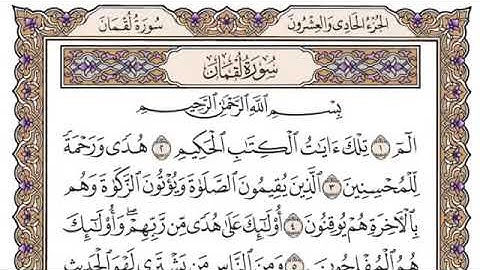 الجزء الحادي والعشرون
سورة لقمان
سورة لقمان
بِسْمِ ٱللَّهِ ٱلرَّحْمَٰنِ ٱلرَّحِيمِ
الٓمٓ ١ تِلْكَ ءَايَٰتُ ٱلْكِتَٰبِ ٱلْحَكِيمِ ٢ هُدًى وَرَحْمَةً
لِّلْمُحْسِنِينَ ٣ ٱلَّذِينَ يُقِيمُونَ ٱلصَّلَوٰةَ وَيُؤْتُونَ ٱلزَّكَوٰةَ وَهُم
بِٱلْءَاخِرَةِ هُمْ يُوقِنُونَ ٤ أُو۟لَٰٓئِكَ عَلَىٰ هُدًى مِّن رَّبِّهِمْ ۖ وَأُو۟لَٰٓئِكَ
هُمُ ٱلْمُفْلِحُونَ ٥ وَمِنَ ٱلنَّاسِ مَن يَشْتَرِى لَهْوَ ٱلْحَدِيثِ